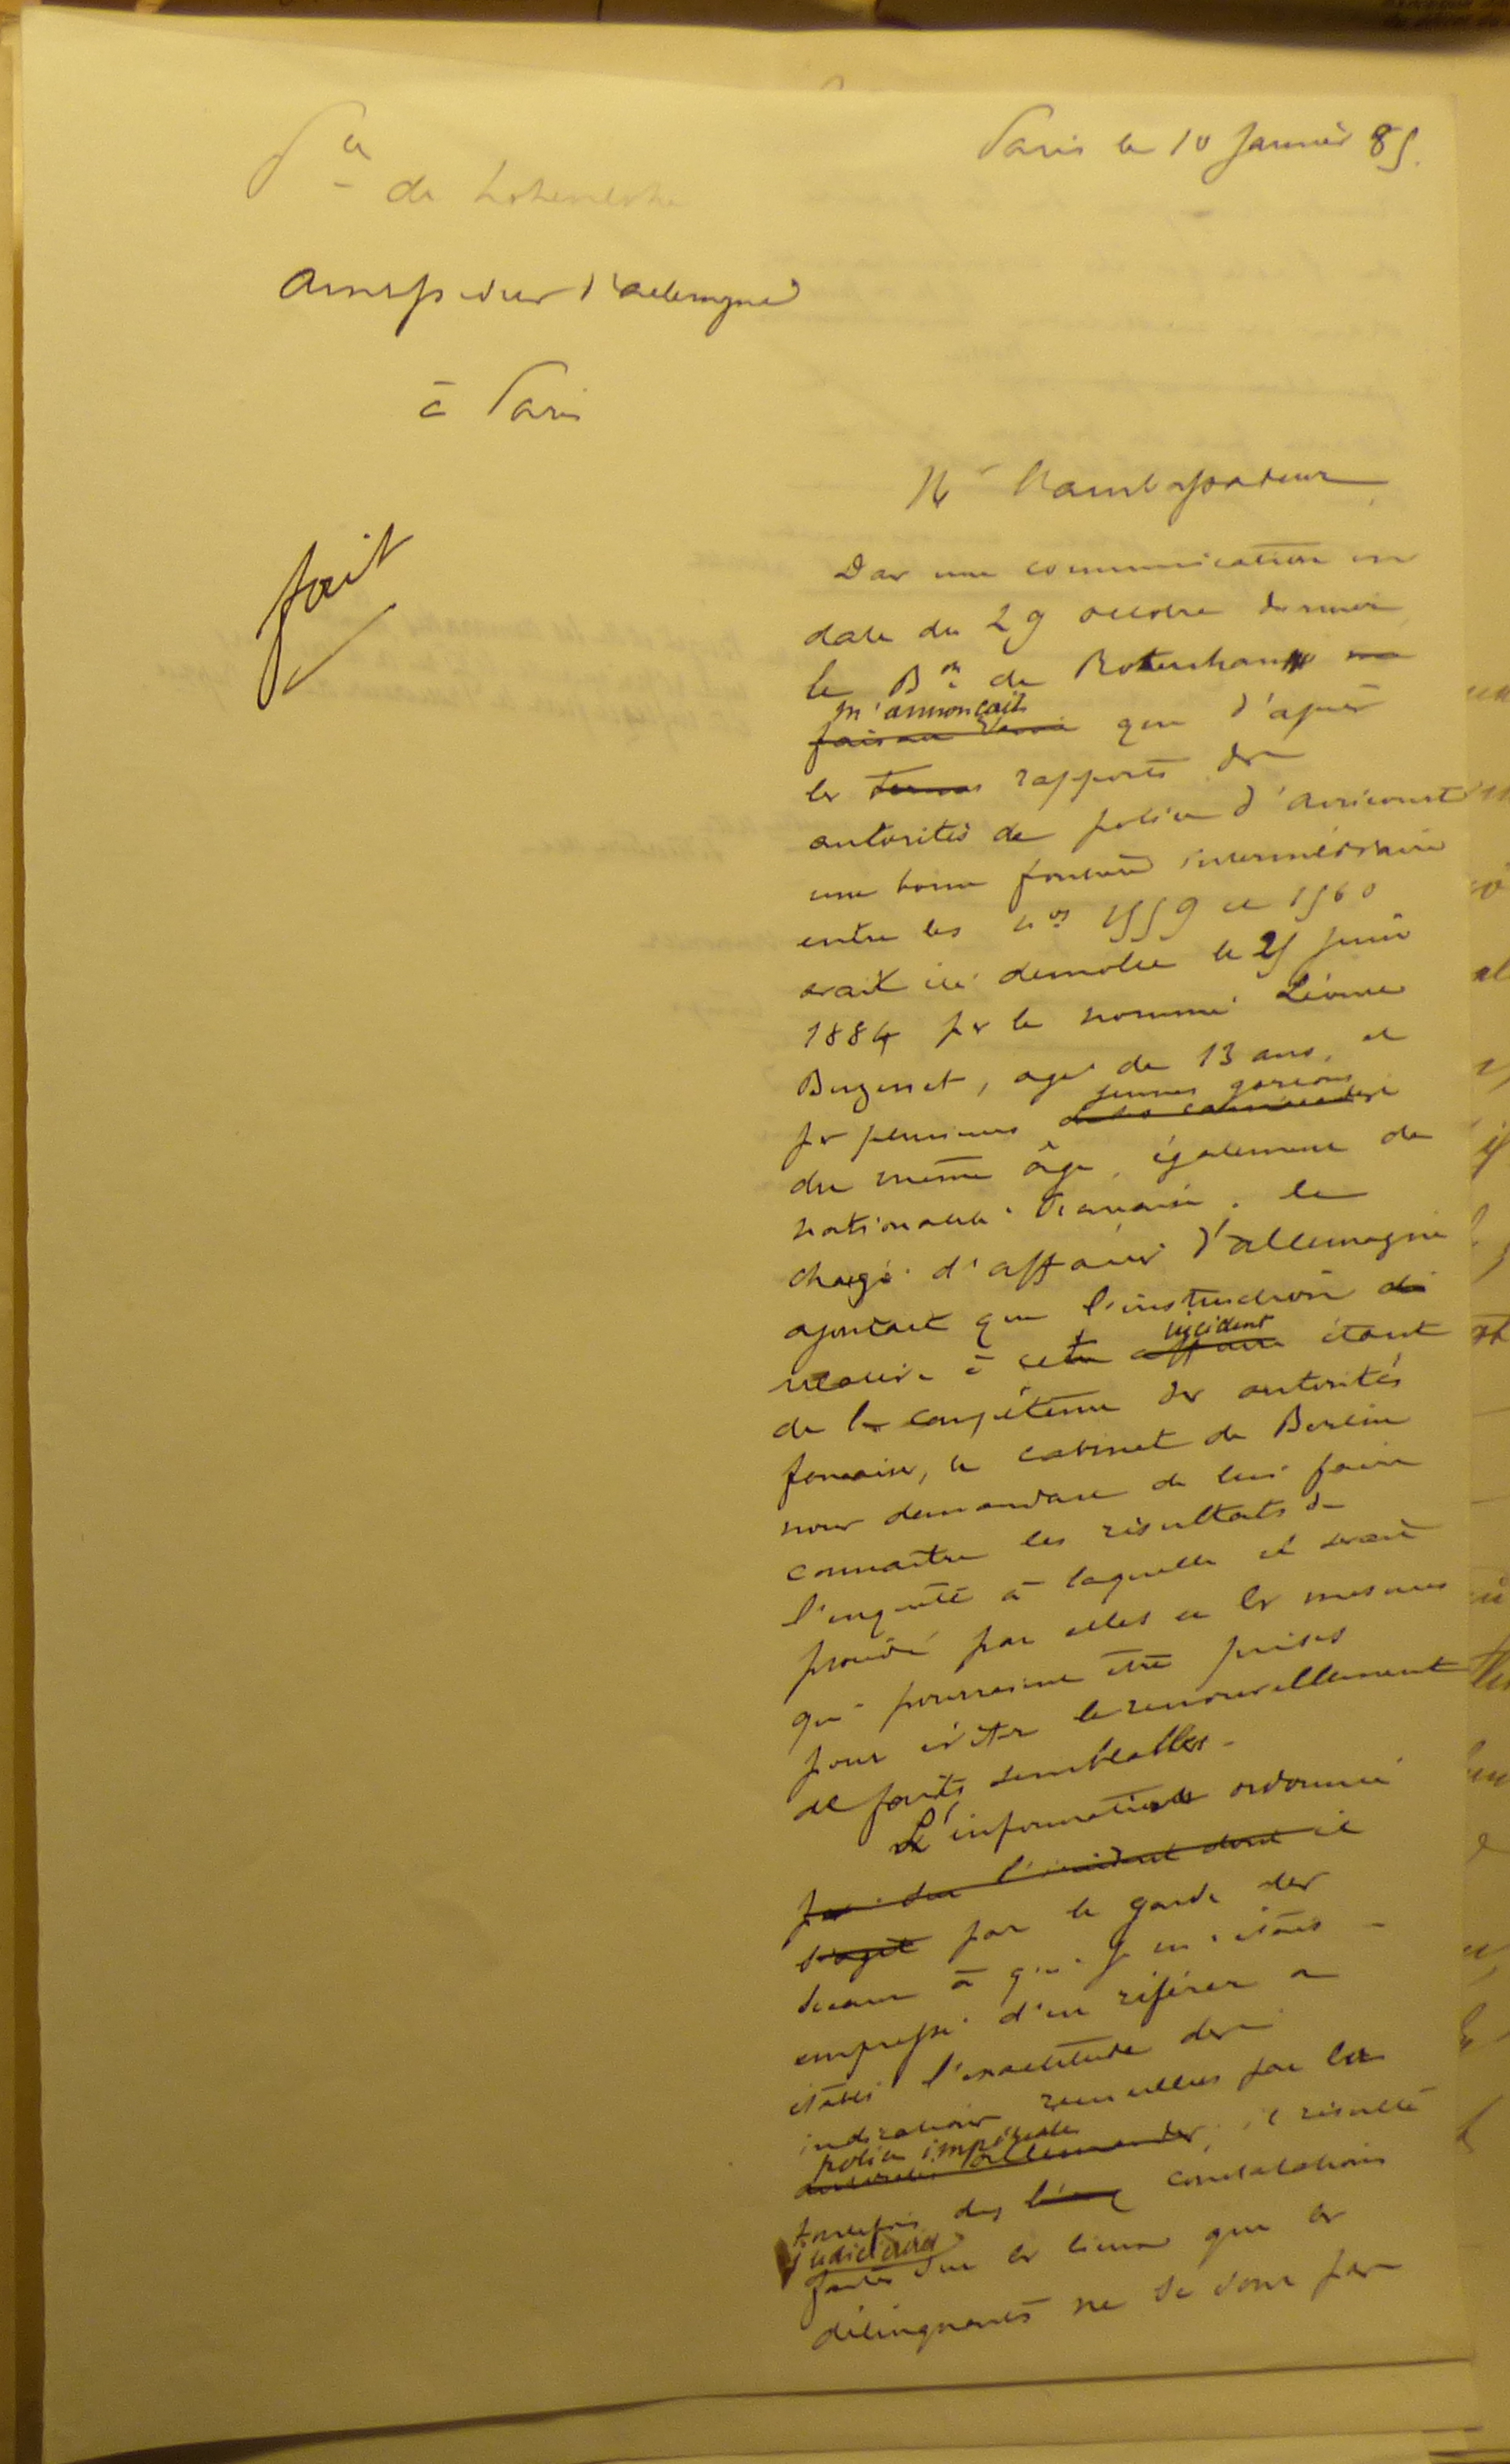 Paris le 10 Janvier 85.
Pce de Hohenlohe
Ambassadeur d'Allemagne
à Paris
fait
Mr l'ambassadeur,
Par une communication en
date du 29 octobre dernier,
le Bon de Rotenhan
m'annonçait
que d'après
les rapports des
autorités de police d'Avricourt
une borne frontière intermédiaire
entre les nos 1559 et 1560
avait été démolie le 25 juin
1884 par le nommé Léonce
Buzenet, agé de 13 ans, et
jeunes garçons
par plusieurs de ses camarades
du même âge, également de
nationalité française. Le
chargé d'affaires d'Allemagne
ajoutait que l'instruction
incident
relative à cette affaire étant
de la compétence des autorités
françaises, le cabinet de Berlin
nous demandait de lui faire
connaître les résultats de
l'enquête à laquelle il serait
procédé par elles et les mesures
qui pourraient être prises
pour éviter le renouvellement
de faits semblables.
L'information ordonnée
sur l'incident dont il
s'agit par le garde des
sceaux à qui je m'étais
empressé d'en référer a
établi l'exactitude des
indications recueillies par la
police impériale
autorités allemandes, il résulte
toutefois des constatations
judiciaires
faites sur les lieux que les
délinquants ne se sont pas